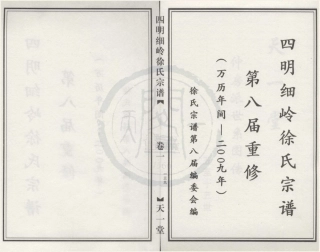 四明细岭徐氏宗谱
第八届重修
(万历年间—二〇〇九年)
徐氏宗谱第八届编委会编
四明细岭徐氏宗谱
卷一
天一堂